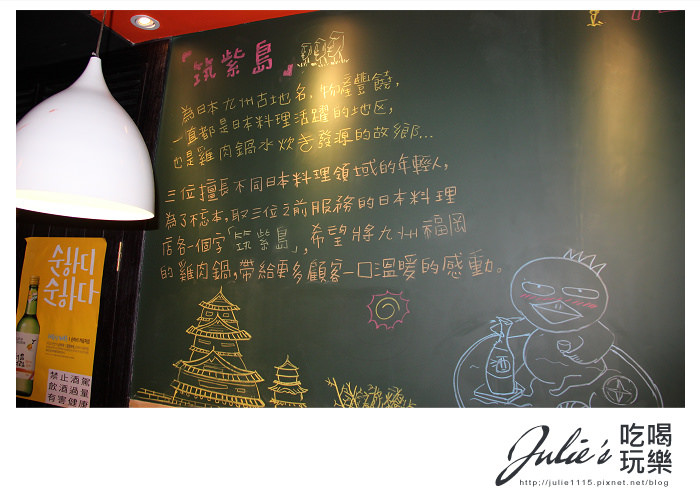 『筑紫島』
為日本九州古地名，物產豐饒，
一直都是日本料理活躍的地区，
也是雞肉鍋水炊き發源的故鄉...
三位擅長不同日本料理領域的年輕人，
為了不忘本，取三位之前服務的日本料理
店各一個字「筑紫島」，希望將九州福岡
的雞肉鍋，帶給更多顧客一口溫暖的感動。
酒
순하디
순하다
禁止酒駕
飲酒過量
有害健康
Julie's
吃喝
玩樂
http://julie1115.pixnet.net/blog